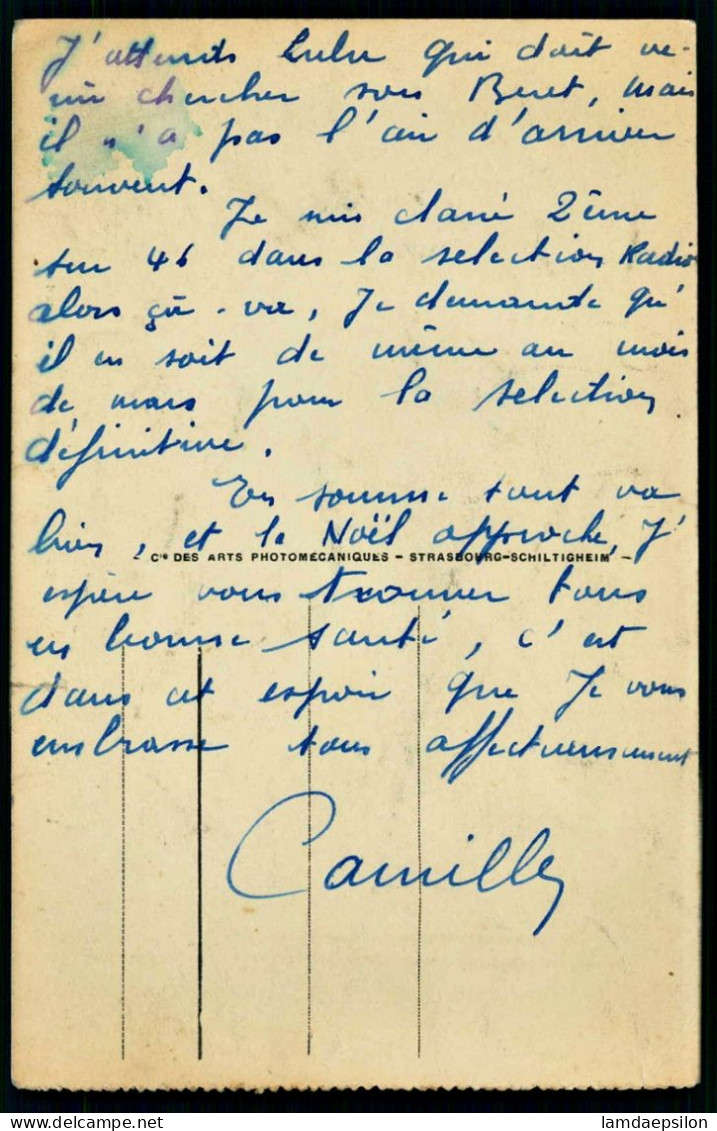 J'attends Lulu qui doit ve-
nir chercher son Beret, mais
il n'a pas l'air d'arriver
souvent.
Je suis classé 2ème
sur 46 dans la selection Radio
alors ça-va, Je demande qu'
il en soit de même au mois
de mars pour la selection
définitive.
En somme tout va
bien, et le Noël approche, J'
Cie DES ARTS PHOTOMECANIQUES - STRASBOURG-SCHILTIGHEIM -
espère vous trouver tous
en bonne santé, c'est
dans cet espoir que Je vous
embrasse tous affectueusement
Camille
lamdaepsilon